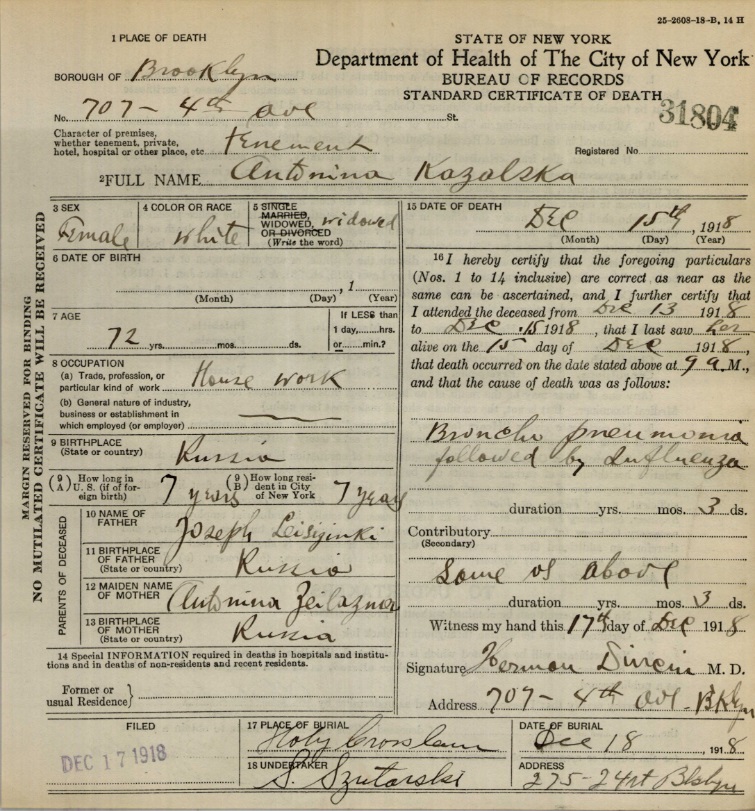 25-2608-18-B, 14 H
1 PLACE OF DEATH
STATE OF NEW YORK
Department of Health of The City of New York
BUREAU OF RECORDS
STANDARD CERTIFICATE OF DEATH
BOROUGH OF Brooklyn
No. 707 - 4th ave St.
31804
Character of premises,
whether tenement, private,
hotel, hospital or other place, etc. tenement
Registered No.
2 FULL NAME Antonina Kozalska
MARGIN RESERVED FOR BINDING
NO MUTILATED CERTIFICATE WILL BE RECEIVED
3 SEX
Female
4 COLOR OR RACE
white
5 SINGLE
MARRIED,
WIDOWED,
OR DIVORCED
(Write the word)
widowed
6 DATE OF BIRTH
, 1
(Month) (Day) (Year)
7 AGE
72 yrs. mos. ds.
If LESS than
1 day, hrs.
or min.?
8 OCCUPATION
(a) Trade, profession, or
particular kind of work House work
(b) General nature of industry,
business or establishment in
which employed (or employer)
9 BIRTHPLACE
(State or country) Russia
(9 A) How long in
U. S. (if of for-
eign birth) 7 years
(9 B) How long resi-
dent in City
of New York 7 years
PARENTS OF DECEASED
10 NAME OF
FATHER Joseph
11 BIRTHPLACE
OF FATHER
(State or country) Russia
12 MAIDEN NAME
OF MOTHER Antonina
13 BIRTHPLACE
OF MOTHER
(State or country) Russia
14 Special INFORMATION required in deaths in hospitals and institu-
tions and in deaths of non-residents and recent residents.
Former or
usual Residence}
15 DATE OF DEATH
Dec 15th, 1918
(Month) (Day) (Year)
16 I hereby certify that the foregoing particulars
(Nos. 1 to 14 inclusive) are correct as near as the
same can be ascertained, and I further certify that
I attended the deceased from Dec 13 1918
to Dec 15 1918, that I last saw her
alive on the 15 day of Dec 1918,
that death occurred on the date stated above at 9 a. M.,
and that the cause of death was as follows:
Broncho pneumonia
followed by Influenza
duration yrs. mos. 3 ds.
Contributory
(Secondary)
Same as above
duration yrs. mos. 3 ds.
Witness my hand this 17th day of Dec 1918
Signature Herman M. D.
Address 707 - 4th ave - Bklyn
FILED
DEC 17 1918
17 PLACE OF BURIAL
Holy Cross
DATE OF BURIAL
Dec 18, 1918
18 UNDERTAKER
S. Szutarski
ADDRESS
275-24st Bklyn